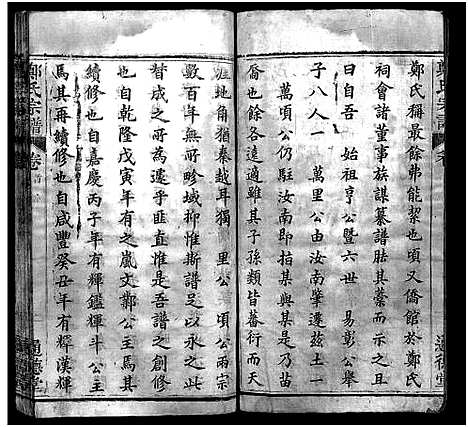 鄭氏宗譜
卷
通德堂
鄭氏稱最餘弗能絜也頃又僑館於鄭氏
祠會諸董事族謀纂譜胠其藁而示之且
曰自吾　始祖亨公暨六世　易彰公舉
子八人一　萬里公由汝南肇遷茲土一
萬頃公仍駐汝南即指某與某是乃苗
裔也餘各遠適雖其子孫類皆蕃衍而天
涯地角猶秦越耳獨　里公　頃公兩宗
數百年無所畛域抑惟斯譜足以永之此
昝咸之所述乎匪直惟是吾譜之創修
也自乾隆戊寅年有之嵐文鄭公主馬其
續修也自嘉慶丙子年有輝鑑輝斗公主
馬其再續修也自咸豐癸丑年有輝漢輝
鄭氏宗譜
卷
通德堂